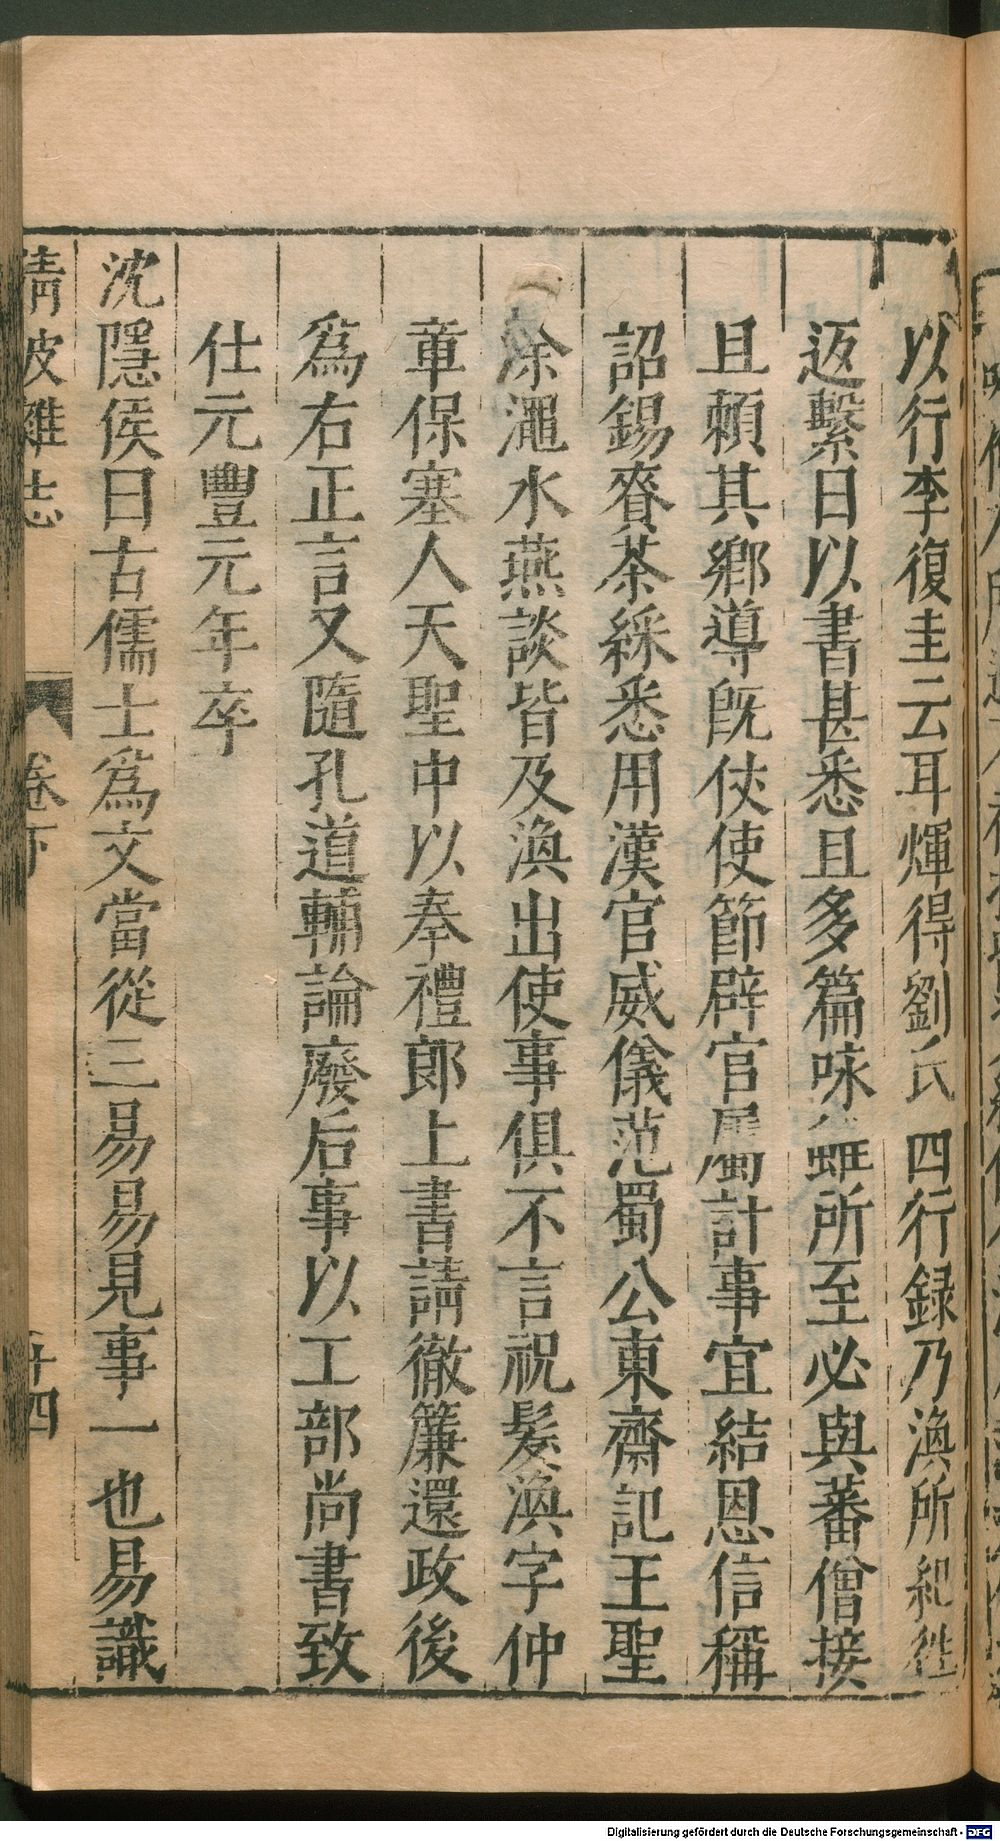 以行李復圭云耳輝得劉氏四行録乃渙所紀徃
返繫日以書甚悉且多篇咏雖所至必與蕃僧接
且頼其鄉導既使節辟官屬計事宜結恩信稱
詔錫賚茶綵悉用漢官威儀范蜀公東齋記王聖
涂澠水燕談皆及渙出使事俱不言祝髮渙字仲
章保塞人天聖中以奉禮郎上書請徹簾還政後
爲右正言又隨孔道輔論廢后事以工部尚書致
仕元豐元年卒
沈隱侯曰古儒士爲文當從三易易見事一也易識
清波雜志
卷下
十四
Digitalisierung gefördert durch die Deutsche Forschungsgemeinschaft - DFG